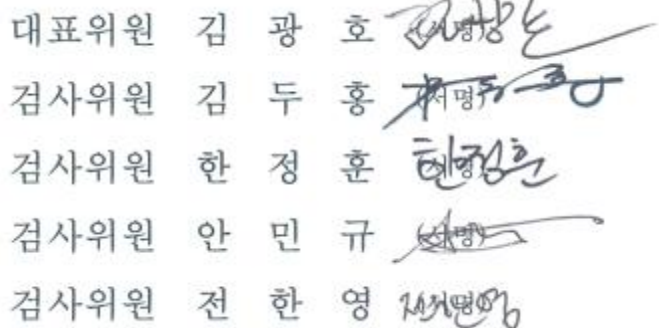 대표위원 김 광 호 (서명)
검사위원 김 두 홍 (서명)
검사위원 한 정 훈 한정훈
검사위원 안 민 규 (서명)
검사위원 전 한 영